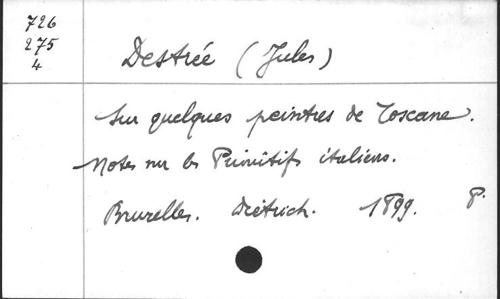 726
275
4
Destrée (Jules)
Sur quelques peintres de Toscane.
Notes sur les Primitifs italiens.
Bruxelles. Dietrich. 1899. P.